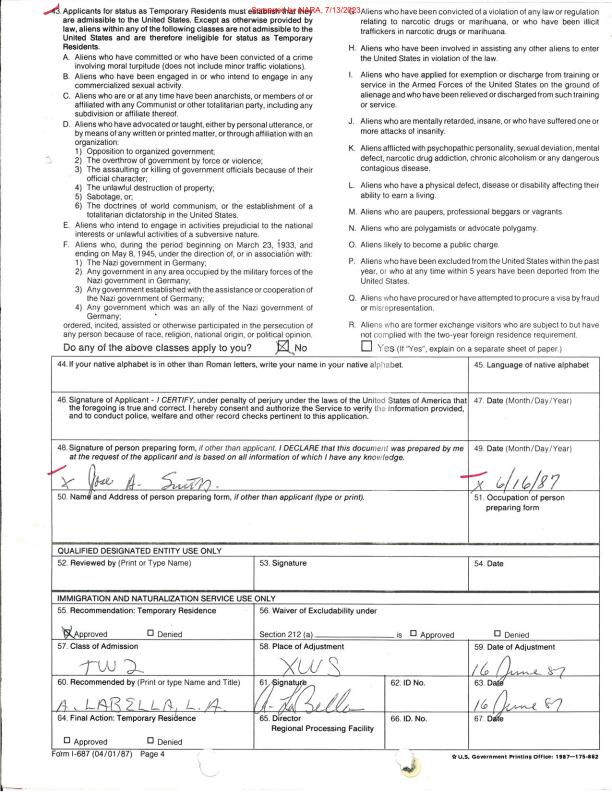 Reproduced by NARA, 7/13/2023
43. Applicants for status as Temporary Residents must establish that they
are admissible to the United States. Except as otherwise provided by
law, aliens within any of the following classes are not admissible to the
United States and are therefore ineligible for status as Temporary
Residents.
A. Aliens who have committed or who have been convicted of a crime
involving moral turpitude (does not include minor traffic violations).
B. Aliens who have been engaged in or who intend to engage in any
commercialized sexual activity.
C. Aliens who are or at any time have been anarchists, or members of or
affiliated with any Communist or other totalitarian party, including any
subdivision or affiliate thereof.
D. Aliens who have advocated or taught, either by personal utterance, or
by means of any written or printed matter, or through affiliation with an
organization:
1) Opposition to organized government;
2) The overthrow of government by force or violence;
3) The assaulting or killing of government officials because of their
official character;
4) The unlawful destruction of property;
5) Sabotage, or;
6) The doctrines of world communism, or the establishment of a
totalitarian dictatorship in the United States.
E. Aliens who intend to engage in activities prejudicial to the national
interests or unlawful activities of a subversive nature.
F. Aliens who, during the period beginning on March 23, 1933, and
ending on May 8, 1945, under the direction of, or in association with:
1) The Nazi government in Germany;
2) Any government in any area occupied by the military forces of the
Nazi government in Germany;
3) Any government established with the assistance or cooperation of
the Nazi government of Germany;
4) Any government which was an ally of the Nazi government of
Germany;
ordered, incited, assisted or otherwise participated in the persecution of
any person because of race, religion, national origin, or political opinion.
G. Aliens who have been convicted of a violation of any law or regulation
relating to narcotic drugs or marihuana, or who have been illicit
traffickers in narcotic drugs or marihuana.
H. Aliens who have been involved in assisting any other aliens to enter
the United States in violation of the law.
I. Aliens who have applied for exemption or discharge from training or
service in the Armed Forces of the United States on the ground of
alienage and who have been relieved or discharged from such training
or service.
J. Aliens who are mentally retarded, insane, or who have suffered one or
more attacks of insanity.
K. Aliens afflicted with psychopathic personality, sexual deviation, mental
defect, narcotic drug addiction, chronic alcoholism or any dangerous
contagious disease.
L. Aliens who have a physical defect, disease or disability affecting their
ability to earn a living.
M. Aliens who are paupers, professional beggars or vagrants.
N. Aliens who are polygamists or advocate polygamy.
O. Aliens likely to become a public charge.
P. Aliens who have been excluded from the United States within the past
year, or who at any time within 5 years have been deported from the
United States.
Q. Aliens who have procured or have attempted to procure a visa by fraud
or misrepresentation.
R. Aliens who are former exchange visitors who are subject to but have
not complied with the two-year foreign residence requirement.
Do any of the above classes apply to you? No Yes (If "Yes", explain on a separate sheet of paper.)
44. If your native alphabet is in other than Roman letters, write your name in your native alphabet.
45. Language of native alphabet
46. Signature of Applicant - I CERTIFY, under penalty of perjury under the laws of the United States of America that
the foregoing is true and correct. I hereby consent and authorize the Service to verify the information provided,
and to conduct police, welfare and other record checks pertinent to this application.
47. Date (Month/Day/Year)
48. Signature of person preparing form, if other than applicant. I DECLARE that this document was prepared by me
at the request of the applicant and is based on all information of which I have any knowledge.
x Jose A. Smith.
49. Date (Month/Day/Year)
x 6/16/87
50. Name and Address of person preparing form, if other than applicant (type or print).
51. Occupation of person
preparing form
QUALIFIED DESIGNATED ENTITY USE ONLY
52. Reviewed by (Print or Type Name)
53. Signature
54. Date
IMMIGRATION AND NATURALIZATION SERVICE USE ONLY
55. Recommendation: Temporary Residence
Approved Denied
56. Waiver of Excludability under
Section 212 (a) is Approved Denied
57. Class of Admission
TW2
58. Place of Adjustment
XWS
59. Date of Adjustment
16 June 87
60. Recommended by (Print or type Name and Title)
A. LABELLA, L.A.
61. Signature
A. LaBella
62. ID No.
63. Date
16 June 87
64. Final Action: Temporary Residence
Approved Denied
65. Director
Regional Processing Facility
66. ID. No.
67. Date
Form I-687 (04/01/87) Page 4
U.S. Government Printing Office: 1987—175-862